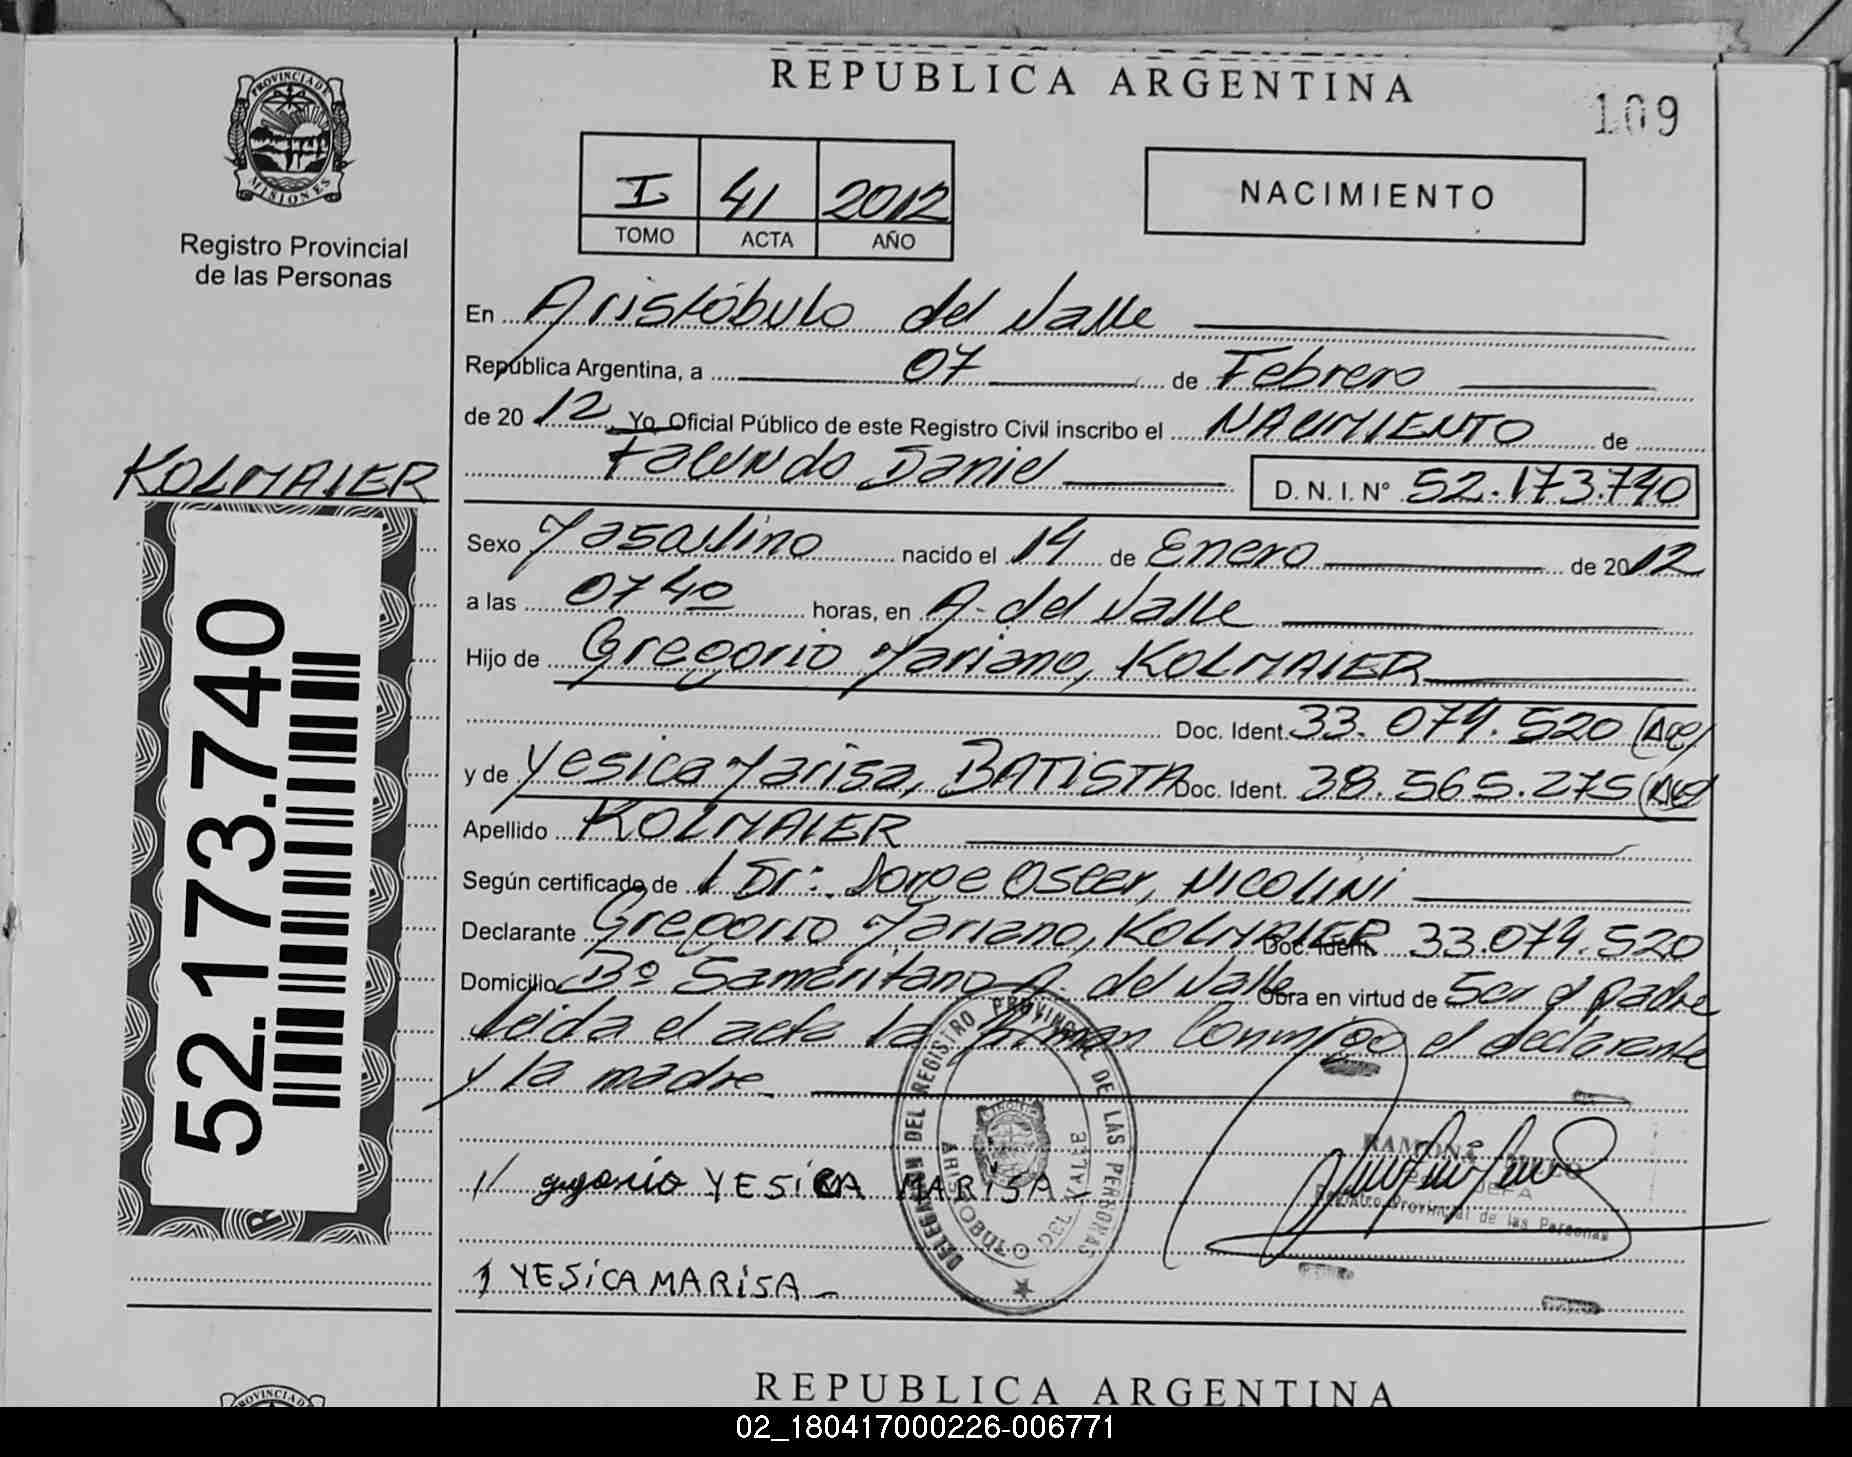 REPUBLICA ARGENTINA
109
PROVINCIA DE MISIONES
Registro Provincial
de las Personas
I 41 2012
TOMO ACTA AÑO
NACIMIENTO
En Aristóbulo del Valle
República Argentina, a 07 de Febrero
de 2012 Yo Oficial Público de este Registro Civil inscribo el NACIMIENTO de
Facundo Daniel D. N. I. N° 52.173.740
KOLMAIER
52.173.740
Sexo Masculino nacido el 14 de Enero de 2012
a las 0740 horas, en A. del Valle
Hijo de Gregorio Mariano, KOLMAIER
Doc. Ident. 33.074.520 (Arg)
y de Yesica Marisa, BATISTA Doc. Ident. 38.565.275 (Arg)
Apellido KOLMAIER
Según certificado de / Dr: Jorge Oscar, NICOLINI
Declarante Gregorio Mariano, KOLMAIER Doc. Ident. 33.074.520
Domicilio B° Samaritano A. del Valle Obra en virtud de Ser el padre
Leida el acta la firman Conmigo el declarante
y la madre
DELEGACION DEL REGISTRO PROVINCIAL DE LAS PERSONAS
ARISTOBULO DEL VALLE
RAMONA
JEFA
Registro Provincial de las Personas
1/ gregorio YESiCA MARISA -
1 YESiCA MARiSA -
REPUBLICA ARGENTINA
02_180417000226-006771